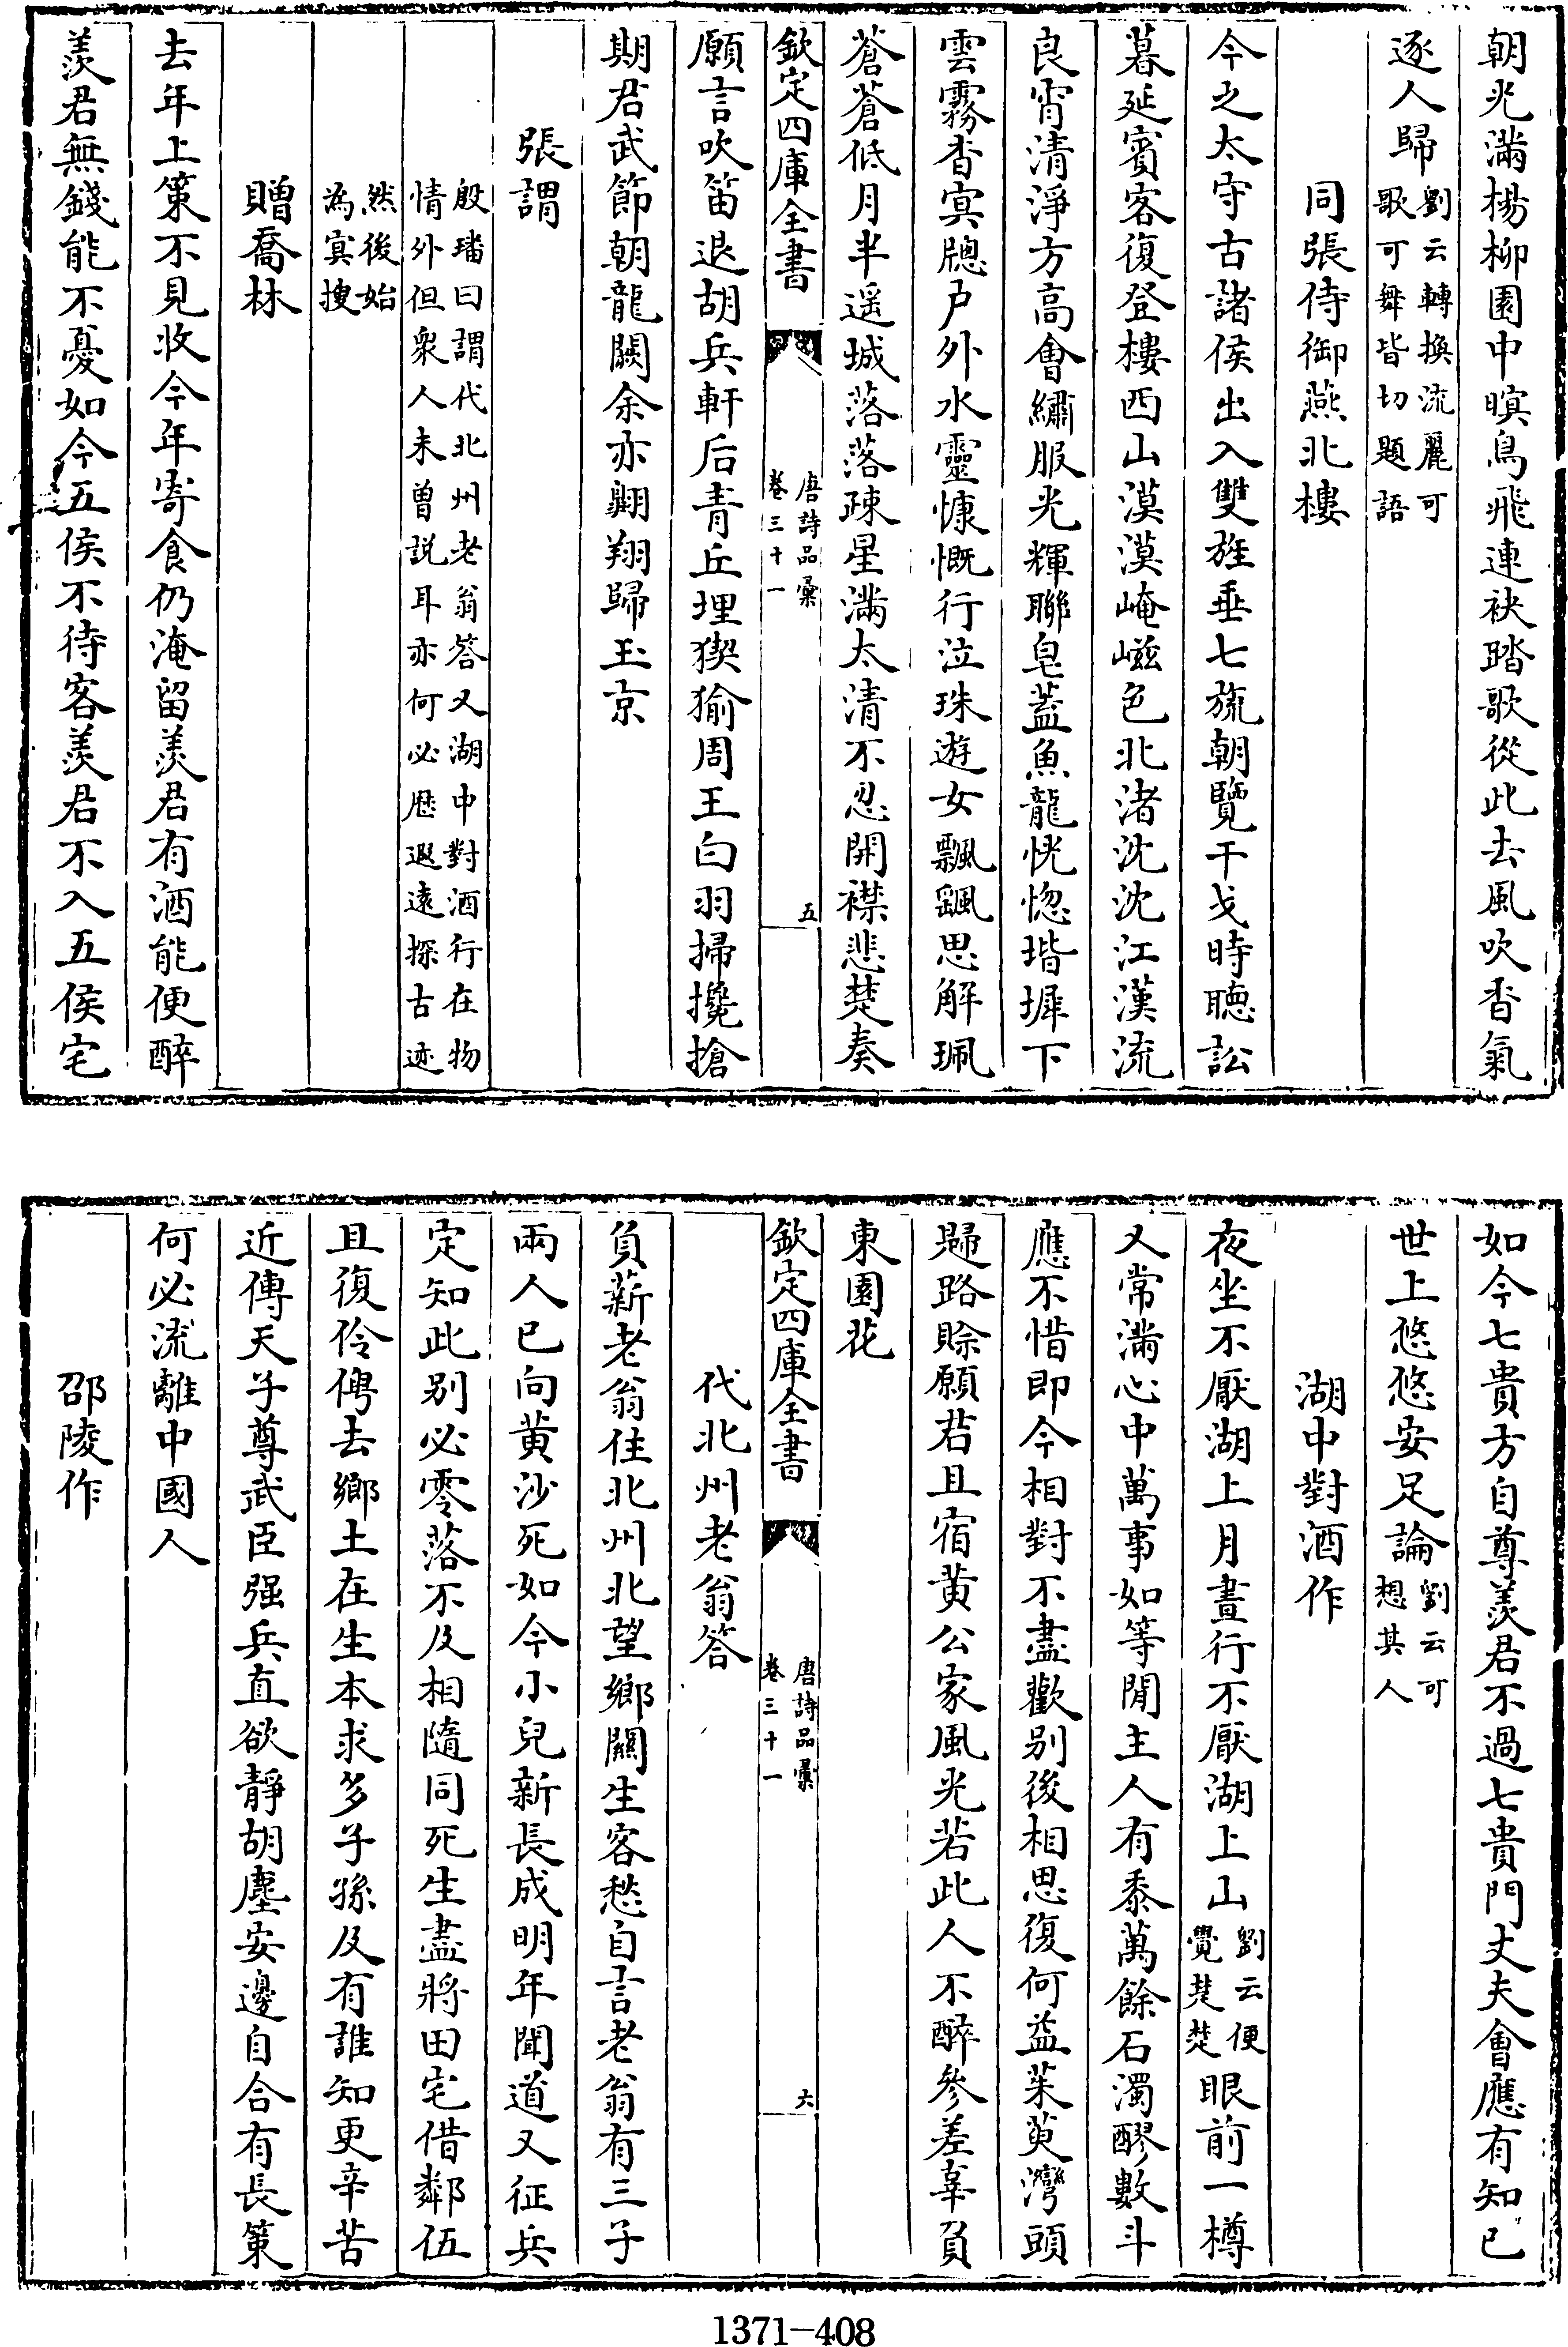 朝光滿楊柳園中暝鳥飛連袂踏歌從此去風吹香氣
逐人歸劉云轉換流麗可歌可舞皆切題語
同張侍御燕北樓
今之太守古諸侯出入雙旌垂七旒朝覽干戈時聽訟
暮延賓客復登樓西山漠漠崦嵫色北渚沈沈江漢流
良宵清淨方高會繡服光輝聯皂蓋魚龍恍惚堦墀下
雲霧杳冥牕户外水靈慷慨行泣珠遊女飄颻思解珮
蒼蒼低月半遥城落落疎星滿太清不忍開襟悲楚奏
欽定四庫全書
唐詩品彙
卷三十一
五
願言吹笛退胡兵軒后青丘埋猰㺄周王白羽掃攙搶
期君武節朝龍闕余亦翺翔歸玉京
張謂
殷璠曰謂代北州老翁答又湖中對酒行在物
情外但衆人未曽説耳亦何必歴遐遠探古迹
然後始
為冥搜
贈喬林
去年上策不見收今年寄食仍淹留羨君有酒能便醉
羨君無錢能不憂如今五侯不待客羨君不入五侯宅
如今七貴方自尊羨君不過七貴門丈夫會應有知已
世上悠悠安足論劉云可想其人
湖中對酒作
夜坐不厭湖上月晝行不厭湖上山劉云便覺楚楚眼前一樽
又常滿心中萬事如等閒主人有黍萬餘石濁醪數斗
應不惜即今相對不盡歡别後相思復何益茱萸灣頭
歸路賒願君且宿黄公家風光若此人不醉參差辜負
東園花
欽定四庫全書
唐詩品彙
卷三十一
六
代北州老翁答
負薪老翁住北州北望鄉關生客愁自言老翁有三子
兩人已向黄沙死如今小兒新長成明年聞道又征兵
定知此别必零落不及相隨同死生盡將田宅借鄰伍
且復伶俜去鄉土在生本求多子孫及有誰知更辛苦
近傳天子尊武臣强兵直欲靜胡塵安邊自合有長策
何必流離中國人
邵陵作
1371-408